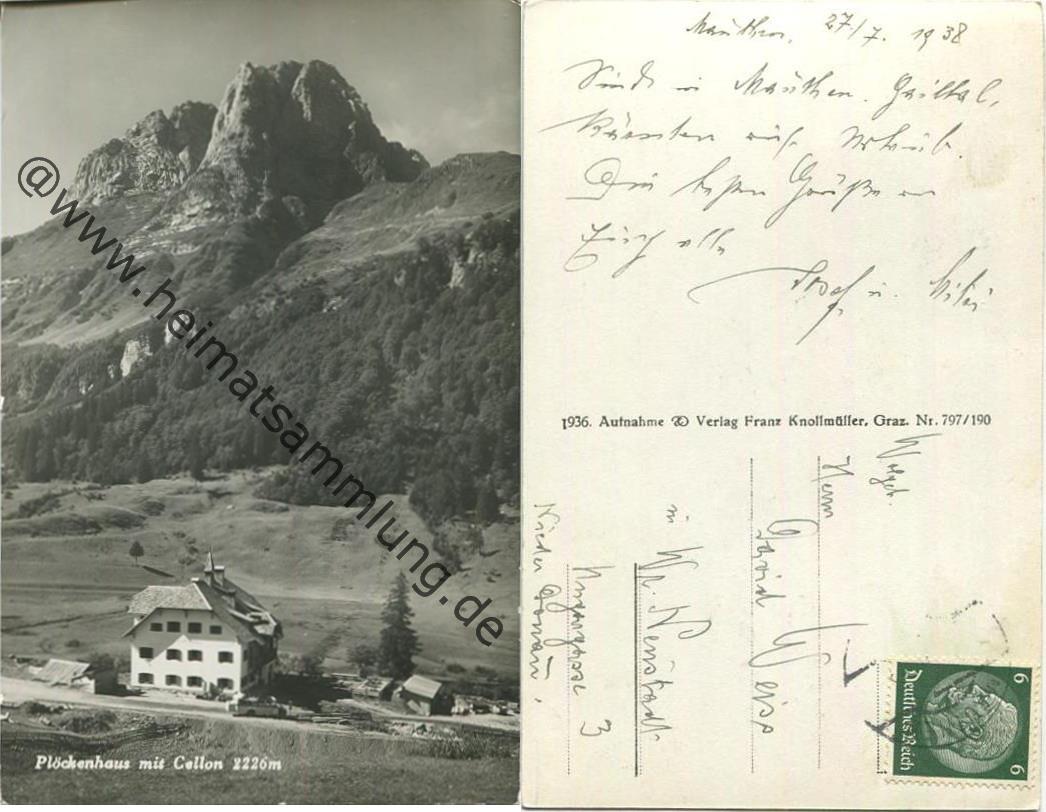 @www.heimatsammlung.de
Plöckenhaus mit Cellon 2226m
Mauthen, 27/7. 1938
Sind in Mauthen. Gailtal,
Kärnten auf Urlaub.
Die besten Grüße an
Euch alle
Josef u.
1936. Aufnahme Verlag Franz Knollmüller, Graz. Nr. 797/190
Herrn
David Weiss
in Wr. Neustadt
3
Nieder Donau.
6 6
Deutsches Reich